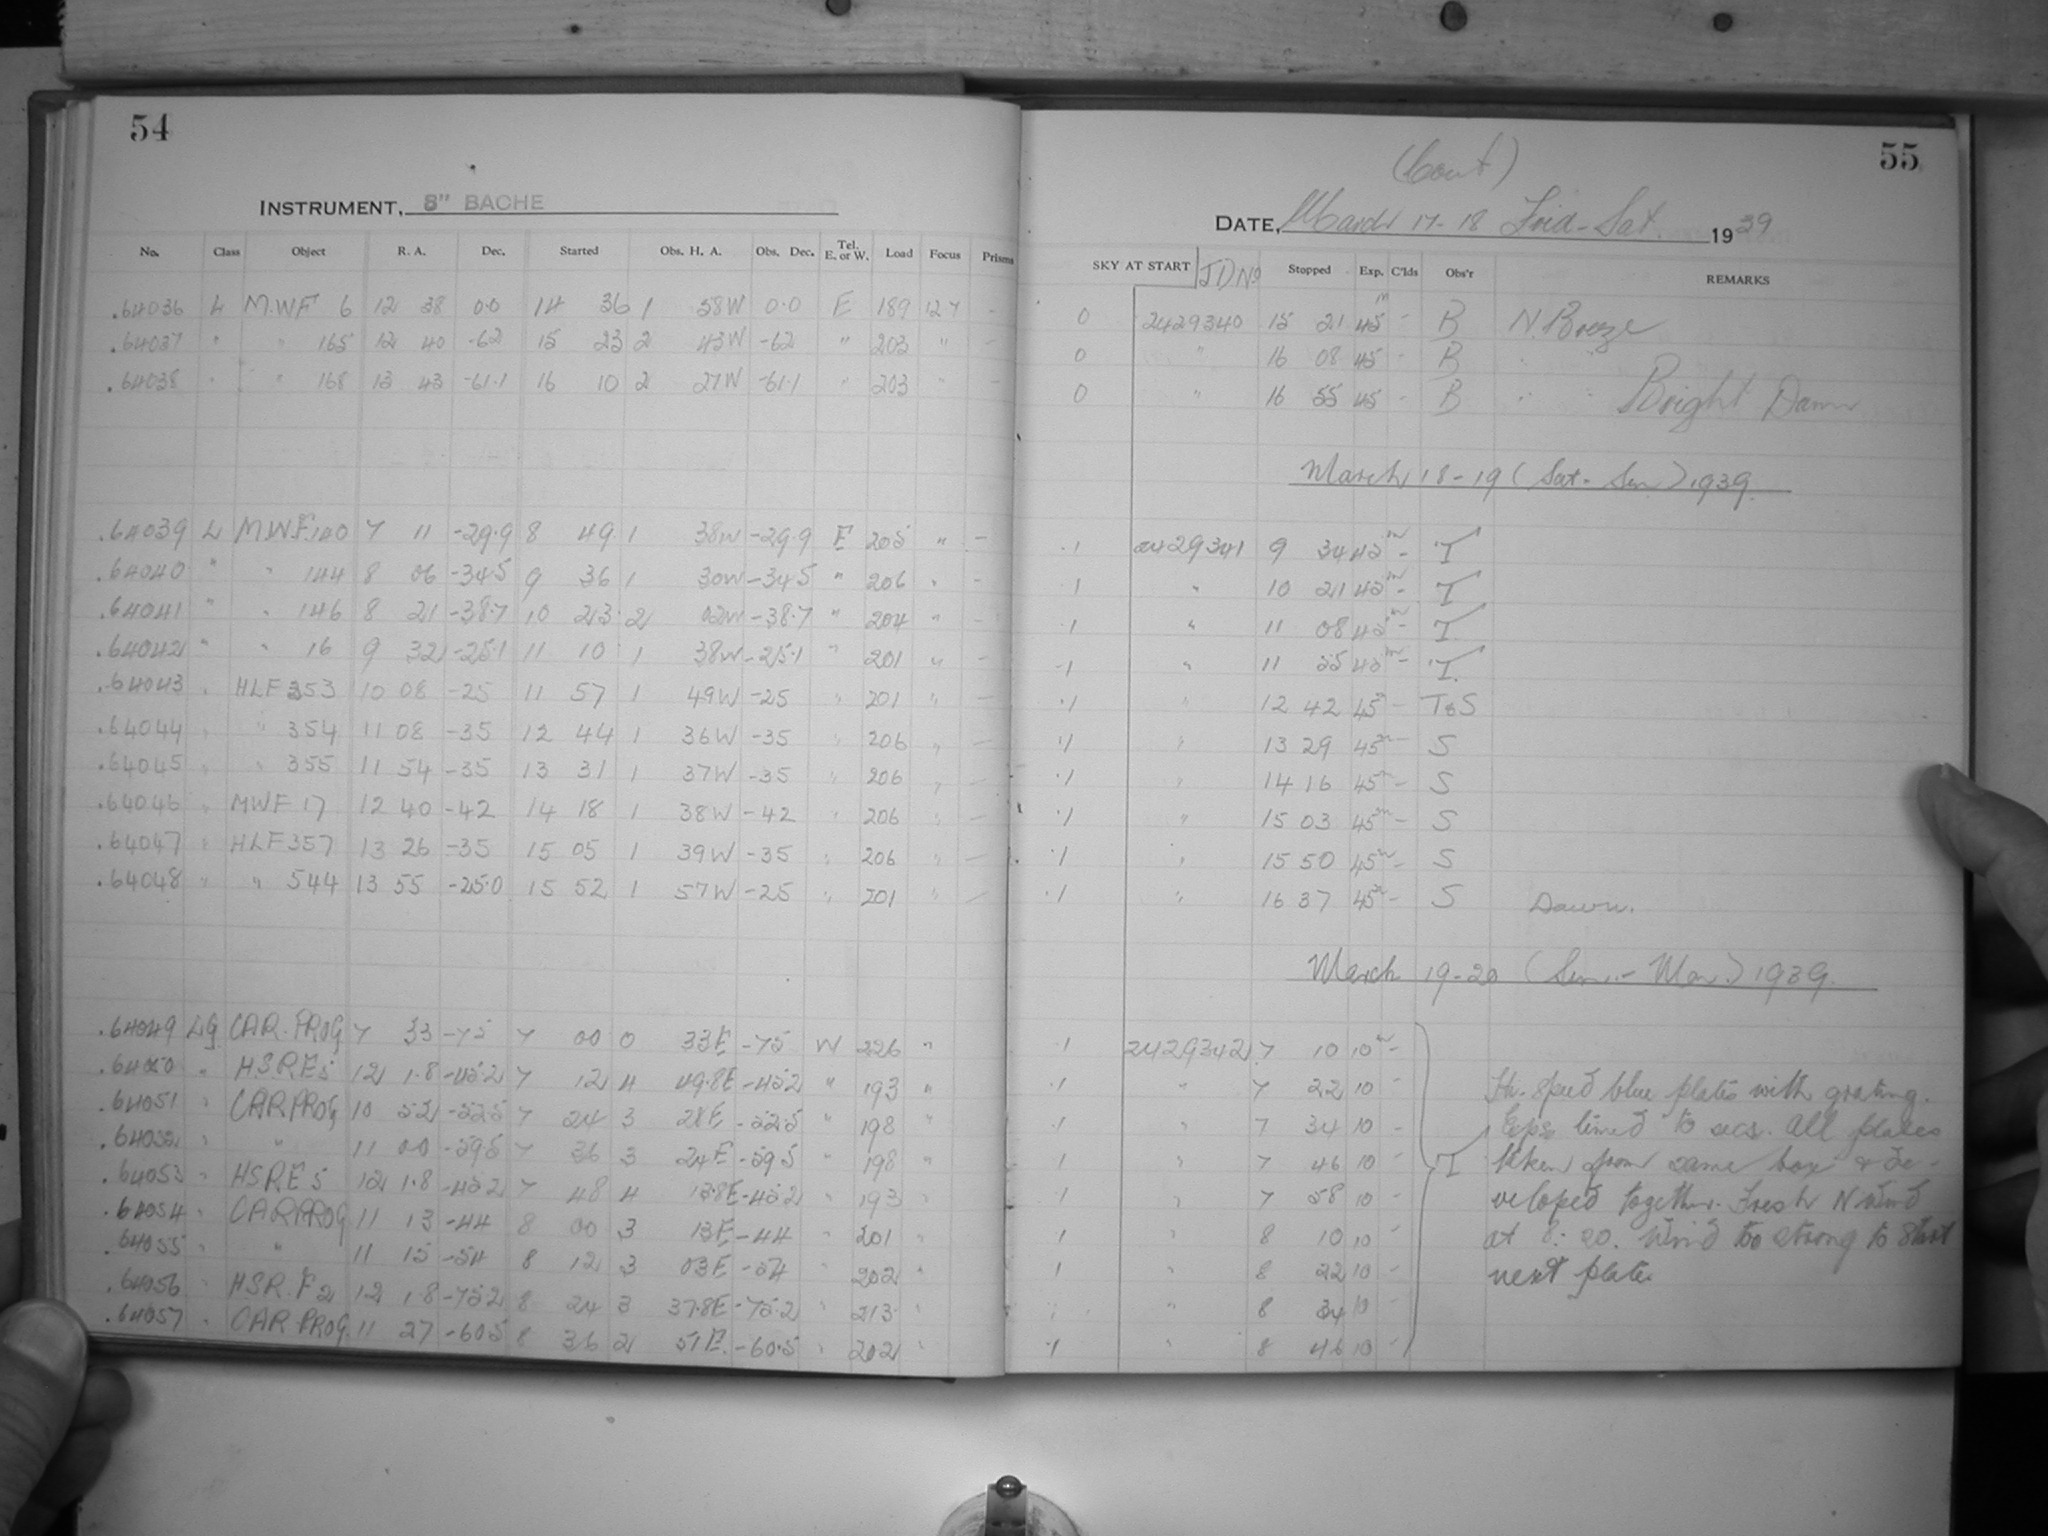 54
INSTRUMENT, 8" BACHE
No. Class Object R. A. Dec. Started Obs. H. A. Obs. Dec. Tel. E. or W. Load Focus Prisms
.64036 L M.W.F 6 12 38 0.0 14 36 1 58W 0.0 E 189 127 -
.64037 " " 165 12 40 -62 15 23 2 43W -62 " 203 " -
.64038 " " 168 13 43 -61.1 16 10 2 27W -61.1 " 203 " -
.64039 L M.W.F. 140 7 11 -29.9 8 49 1 38W -29.9 E 205 " -
.64040 " " 144 8 06 -34.5 9 36 1 30W -34.5 " 206 " -
.64041 " " 146 8 21 -38.7 10 23 2 02W -38.7 " 204 " -
.64042 " " 16 9 32 -25.1 11 10 1 38W -25.1 " 201 " -
.64043 " HLF 353 10 08 -25 11 57 1 49W -25 " 201 " -
.64044 " " 354 11 08 -35 12 44 1 36W -35 " 206 " -
.64045 " " 355 11 54 -35 13 31 1 37W -35 " 206 " -
.64046 " MWF 17 12 40 -42 14 18 1 38W -42 " 206 " -
.64047 " HLF 357 13 26 -35 15 05 1 39W -35 " 206 " -
.64048 " " 544 13 55 -25.0 15 52 1 57W -25 " 201 " -
.64049 LG CAR. PROG 7 33 -75 7 00 0 33E -75 W 226 "
.64050 " H.S.R.E5 12 1.8 -45.2 7 12 4 49.8E -45.2 " 193 "
.64051 " CAR. PROG 10 52 -52.5 7 24 3 28E -52.5 " 198 "
.64052 " " 11 00 -59.5 7 36 3 24E -59.5 " 198 "
.64053 " H.S.R.E 5 12 1.8 -45.2 7 48 4 13.8E -45.2 " 193 "
.64054 " CAR PROG 11 13 -44 8 00 3 13E -44 " 201 "
.64055 " " 11 15 -54 8 12 3 03E -54 " 202 "
.64056 " H.S.R. F2 12 1.8 -75.2 8 24 3 37.8E -75.2 " 213 "
.64057 " CAR PROG. 11 27 -60.5 8 36 2 51E. -60.5 " 202 "
55
(Cont)
DATE, March 17-18 Frid-Sat. 1939
SKY AT START J.D. No Stopped Exp. C'lds Obs'r REMARKS
0 2429340 15 21 45m - B N. Breeze
0 " 16 08 45 - B "
0 " 16 55 45 - B " " Bright Dawn
March 18-19 (Sat- Sun) 1939.
.1 2429341 9 34 45m - T
.1 " 10 21 45m - T
.1 " 11 08 45m - T.
.1 " 11 55 45m - T.
.1 " 12 42 45m - T&S
.1 " 13 29 45m - S
.1 " 14 16 45m - S
.1 " 15 03 45m - S
.1 " 15 50 45m - S
.1 " 16 37 45m - S Dawn.
March 19-20 (Sun.- Mon.) 1939.
.1 2429342 7 10 10m -
.1 " 7 22 10 - Hi. Speed blue plates with grating.
.1 " 7 34 10 - Exps timed to secs. All plates
.1 " 7 46 10 - T taken from same box & de-
.1 " 7 58 10 - veloped together. Fresh N wind
.1 " 8 10 10 - at 8:20. Wind too strong to start
.1 " 8 22 10 - next plate.
" " 8 34 10 -
.1 " 8 46 10 -